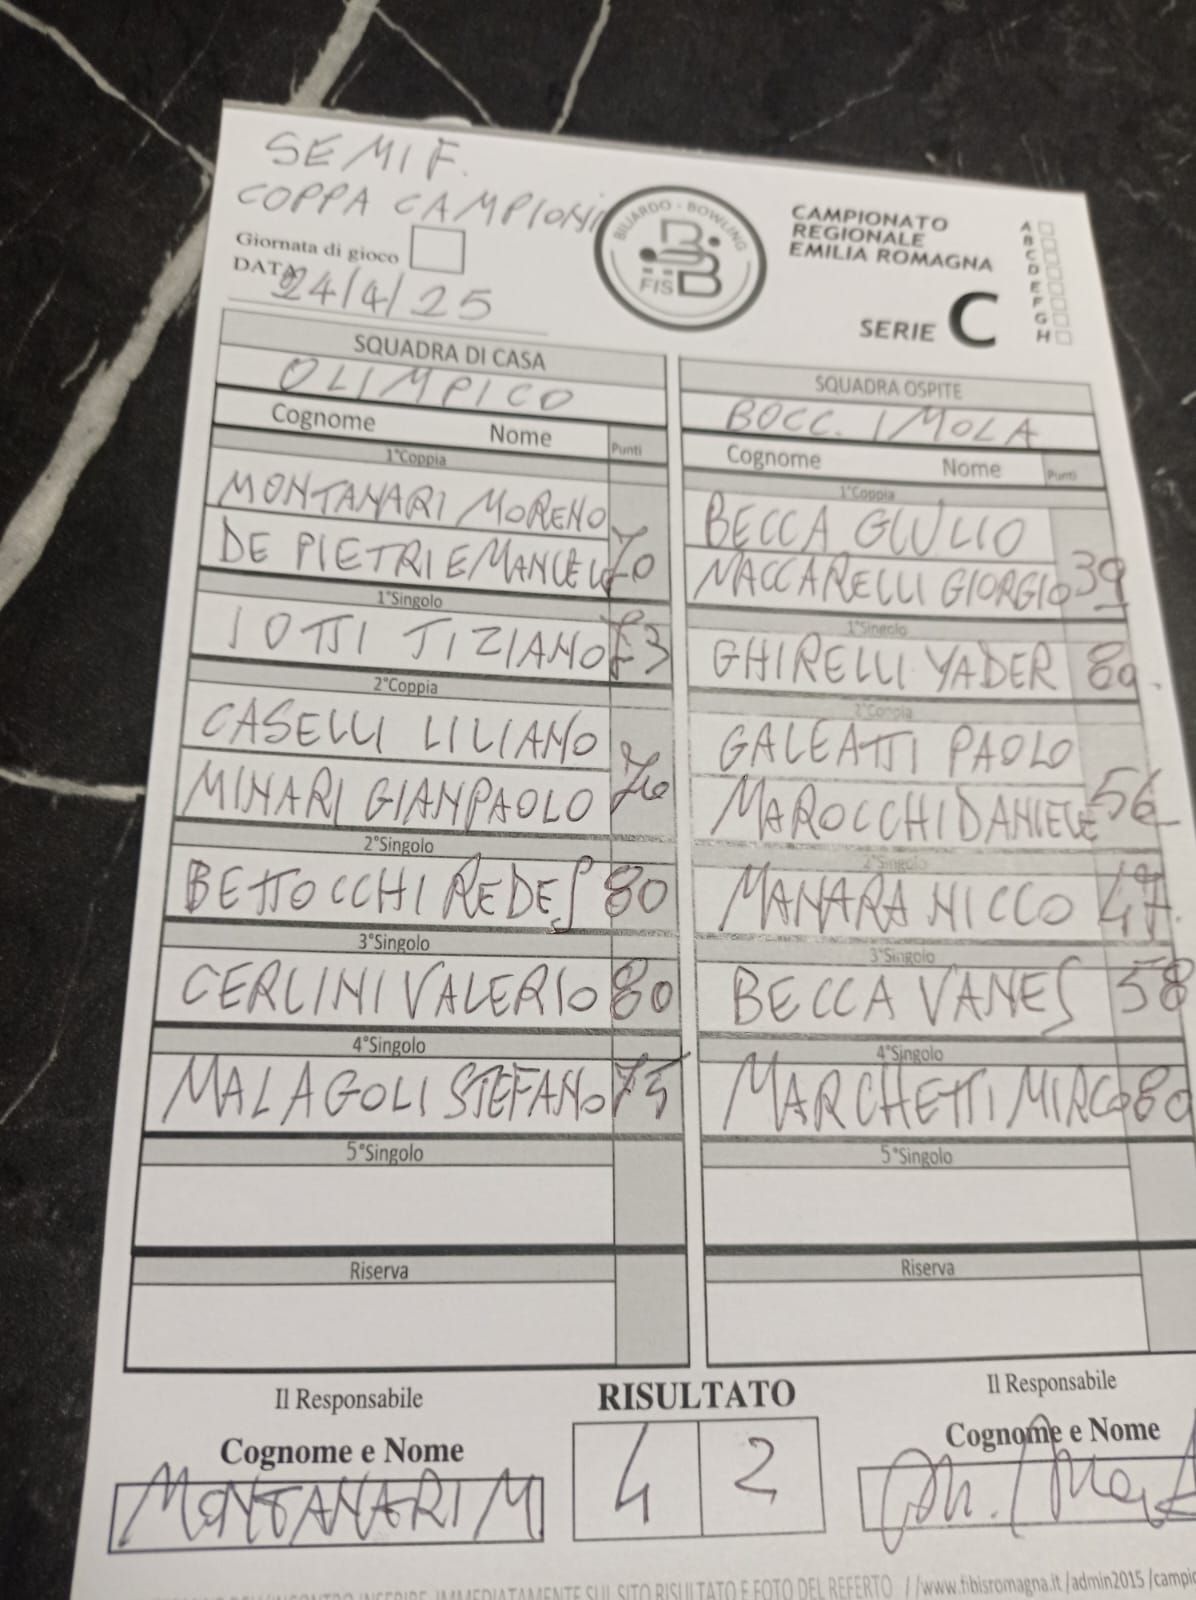 SEMIF.
COPPA CAMPIONI
Giornata di gioco
DATA 24/4/25
BILIARDO - BOWLING
FISBB
CAMPIONATO
REGIONALE
EMILIA ROMAGNA
SERIE C
A
B
C
D
E
F
G
H
SQUADRA DI CASA
OLIMPICO
Cognome Nome Punti
1°Coppia
MONTANARI MORENO
DE PIETRI EMANUELE 70
1°Singolo
IOTTI TIZIANO 73
2°Coppia
CASELLI LILIANO
MINARI GIANPAOLO 70
2°Singolo
BETTOCCHI REDES 80
3°Singolo
CERLINI VALERIO 80
4°Singolo
MALAGOLI STEFANO 75
5°Singolo
Riserva
SQUADRA OSPITE
BOCC. IMOLA
Cognome Nome Punti
1°Coppia
BECCA GIULIO
MACCARELLI GIORGIO 39
1°Singolo
GHIRELLI YADER 80.
2°Coppia
GALEATTI PAOLO
MAROCCHI DANIELE 56
2°Singolo
MANARA NICCO 47.
3°Singolo
BECCA VANES 58
4°Singolo
MARCHETTI MIRCO 80
5°Singolo
Riserva
Il Responsabile
Cognome e Nome
MONTANARI M
RISULTATO
4 2
Il Responsabile
Cognome e Nome
INSERIRE IMMEDIATAMENTE SUL SITO RISULTATO E FOTO DEL REFERTO //www.fibisromagna.it /admin2015 /campio